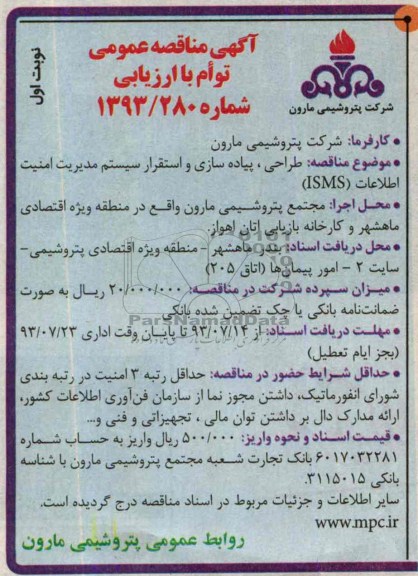 نوبت اول
آگهی مناقصه عمومی
توأم با ارزیابی
شماره ۱۳۹۳/۲۸۰
شرکت پتروشیمی مارون
• کارفرما: شرکت پتروشیمی مارون
• موضوع مناقصه: طراحی ، پیاده سازی و استقرار سیستم مدیریت امنیت
اطلاعات (ISMS)
• محـل اجرا: مجتمع پتروشـیمی مارون واقـع در منطقه ویژه اقتصادی
ماهشهر و کارخانه بازیابی اتان اهواز.
• محل دریافت اسناد: بندر ماهشهر - منطقه ویژه اقتصادی پتروشیمی-
سایت ۲ - امور پیمانها (اتاق ۲۰۵)
• میـزان سـپرده شـرکت در مناقصـه: ۲۰/۰۰۰/۰۰۰ ریـال به صورت
ضمانت‌نامه بانکی یا چک تضمین شده بانکی
• مهلـت دریافت اسـناد: از ۹۳/۰۷/۱۴ تا پایـان وقت اداری ۹۳/۰۷/۲۳
(بجز ایام تعطیل)
• حداقل شـرایط حضور در مناقصه: حداقل رتبه ۳ امنیت در رتبه بندی
شورای انفورماتیک، داشتن مجوز نما از سازمان فن‌آوری اطلاعات کشور،
ارائه مدارک دال بر داشتن توان مالی ، تجهیزاتی و فنی و...
• قیمت اسـناد و نحوه واریز: ۵۰۰/۰۰۰ ریال واریز به حسـاب شـماره
۶۰۱۷۰۳۲۲۸۱ بانک تجارت شـعبه مجتمع پتروشیمی مارون با شناسه
بانکی ۳۱۱۵۰۱۵.
سایر اطلاعات و جزئیات مربوط در اسناد مناقصه درج گردیده است.
www.mpc.ir
روابط عمومی پتروشیمی مارون
ParsNamadData